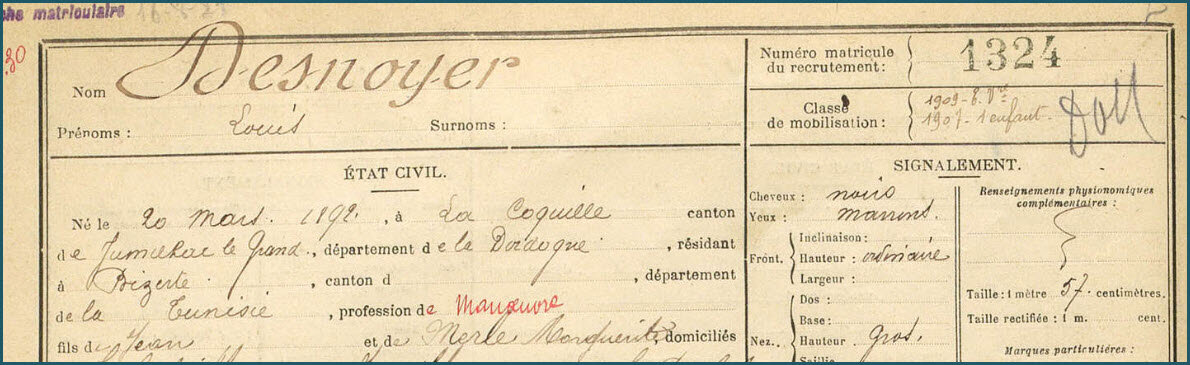 che matriculaire
30
Nom Desnoyer
Prénoms : Louis Surnoms :
Numéro matricule
du recrutement : 1324
Classe
de mobilisation : 1909 -
1907 - 1 enfant -
ÉTAT CIVIL.
Né le 20 mars 1892, à La Coquille canton
de Jumilhac le Grand, département de la Dordogne, résidant
à Bizerte, canton d , département
de la Tunisie, profession de Manœuvre
fils de Jean et de Merle Marguerite, domiciliés
SIGNALEMENT.
Cheveux : noirs
Yeux : marrons.
Front. Inclinaison :
Hauteur : ordinaire
Largeur :
Nez. Dos :
Base :
Hauteur : Gros.
Saillie
Renseignements physionomiques
complémentaires :
Taille : 1 mètre 57 centimètres.
Taille rectifiée : 1 m. cent.
Marques particulières :